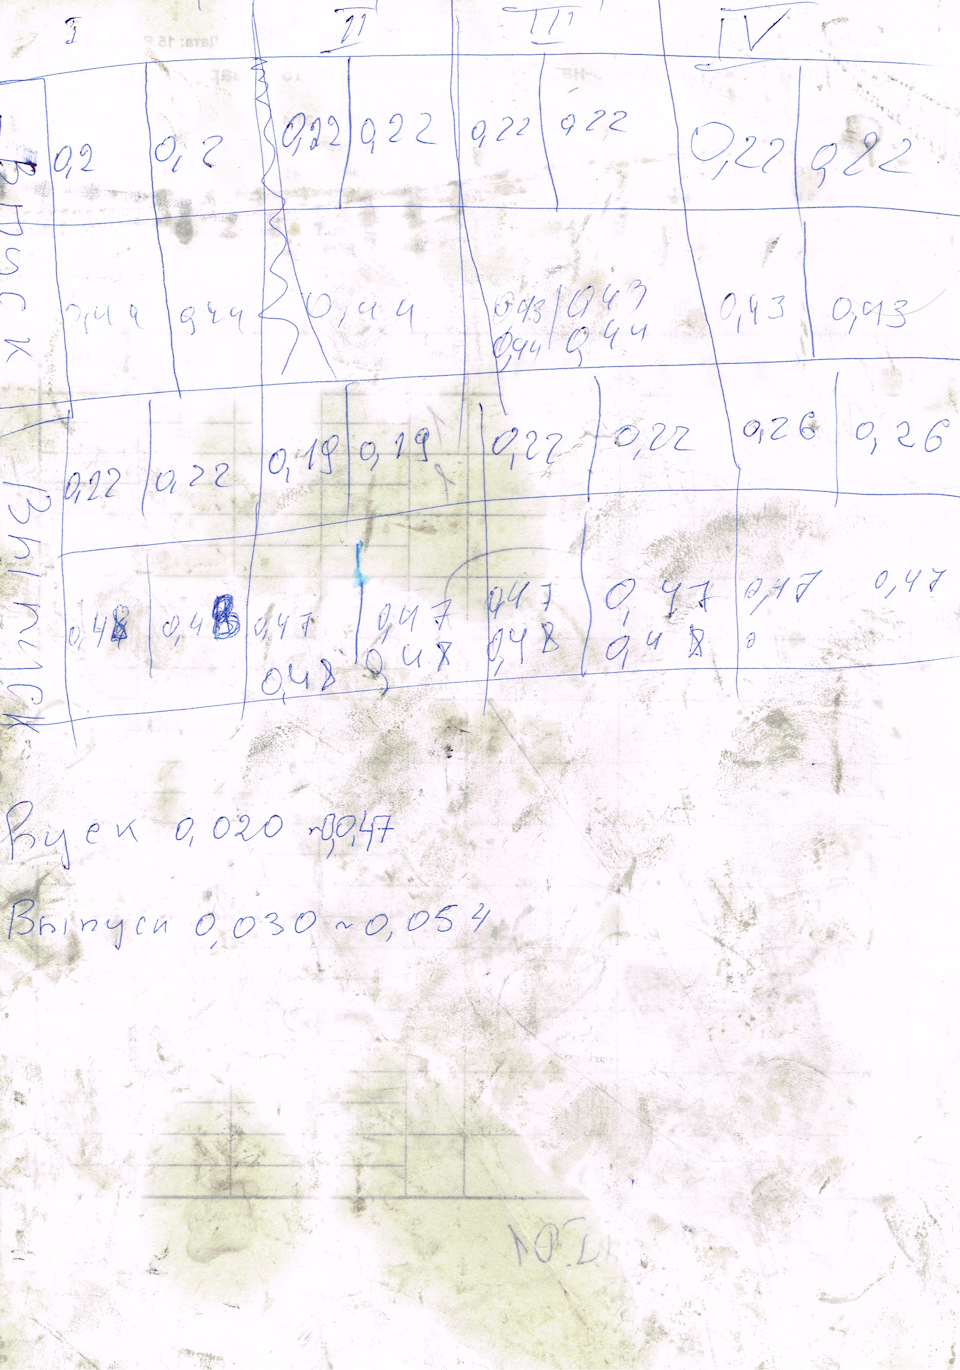 I II III IV
Впуск
0,2 0,2 0,22 0,22 0,22 0,22 0,22 0,22
0,44 0,44 0,44 0,43 0,43 0,43 0,43
0,44 0,44
Выпуск
0,22 0,22 0,19 0,19 0,22 0,22 0,26 0,26
0,48 0,48 0,47 0,47 0,47 0,47 0,47 0,47
0,48 0,48 0,48 0,48 0
Вуск 0,020 ~ 0,47
Выпуск 0,030 ~ 0,054